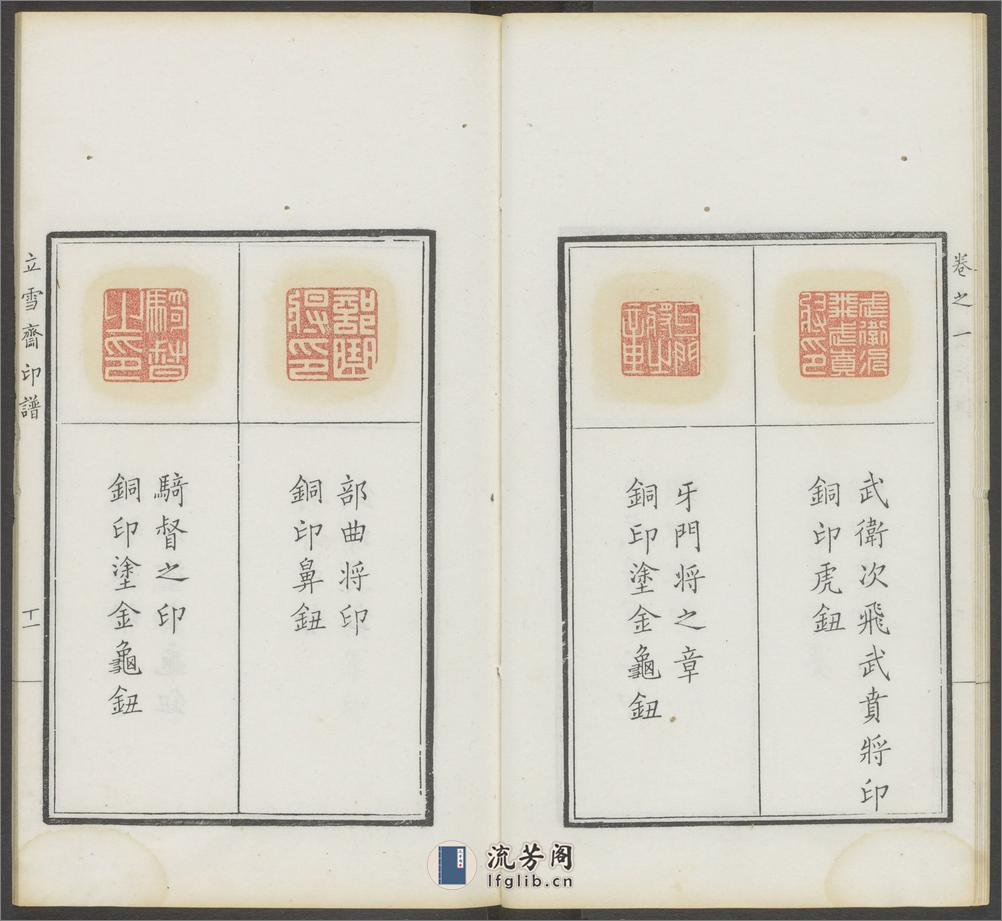 卷之一
武衛次飛武賁將印
銅印虎鈕
牙門將之章
銅印塗金龜鈕
部曲将印
銅印鼻鈕
騎督之印
銅印塗金龜鈕
立雪齋印譜
十一
流芳阁
lfglib.cn